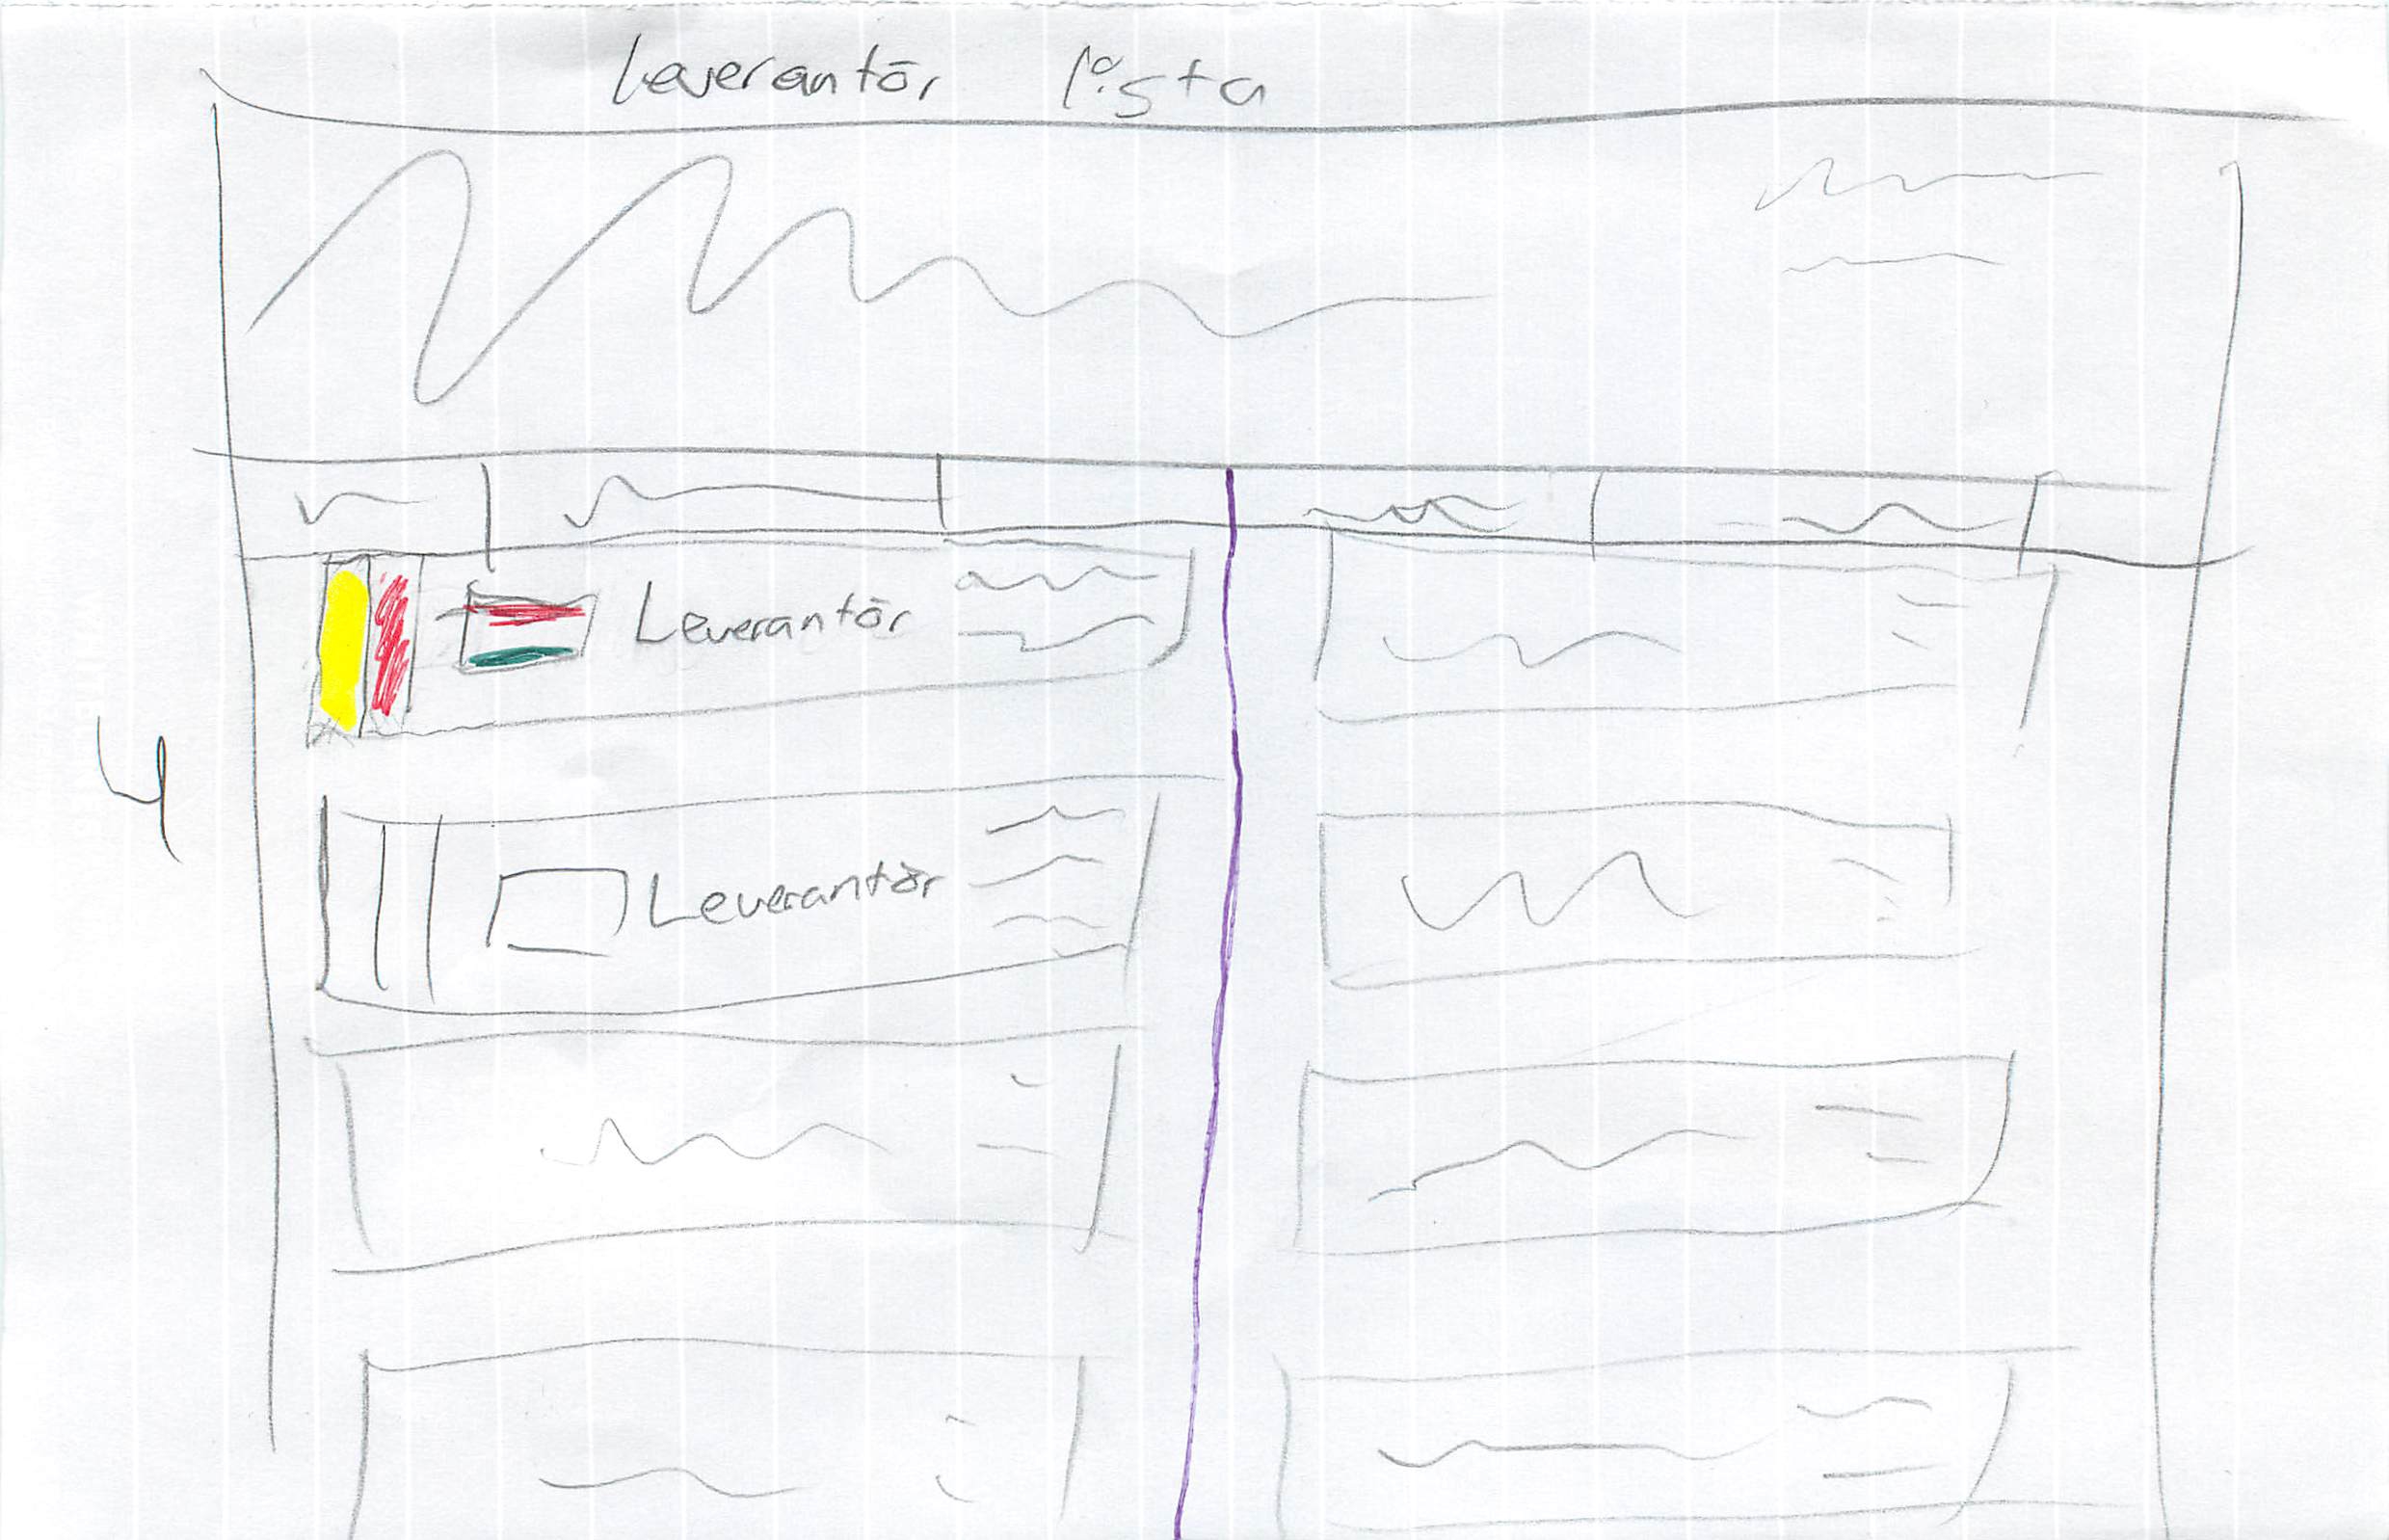 Leverantör lista
Leverantör
4
Leverantör